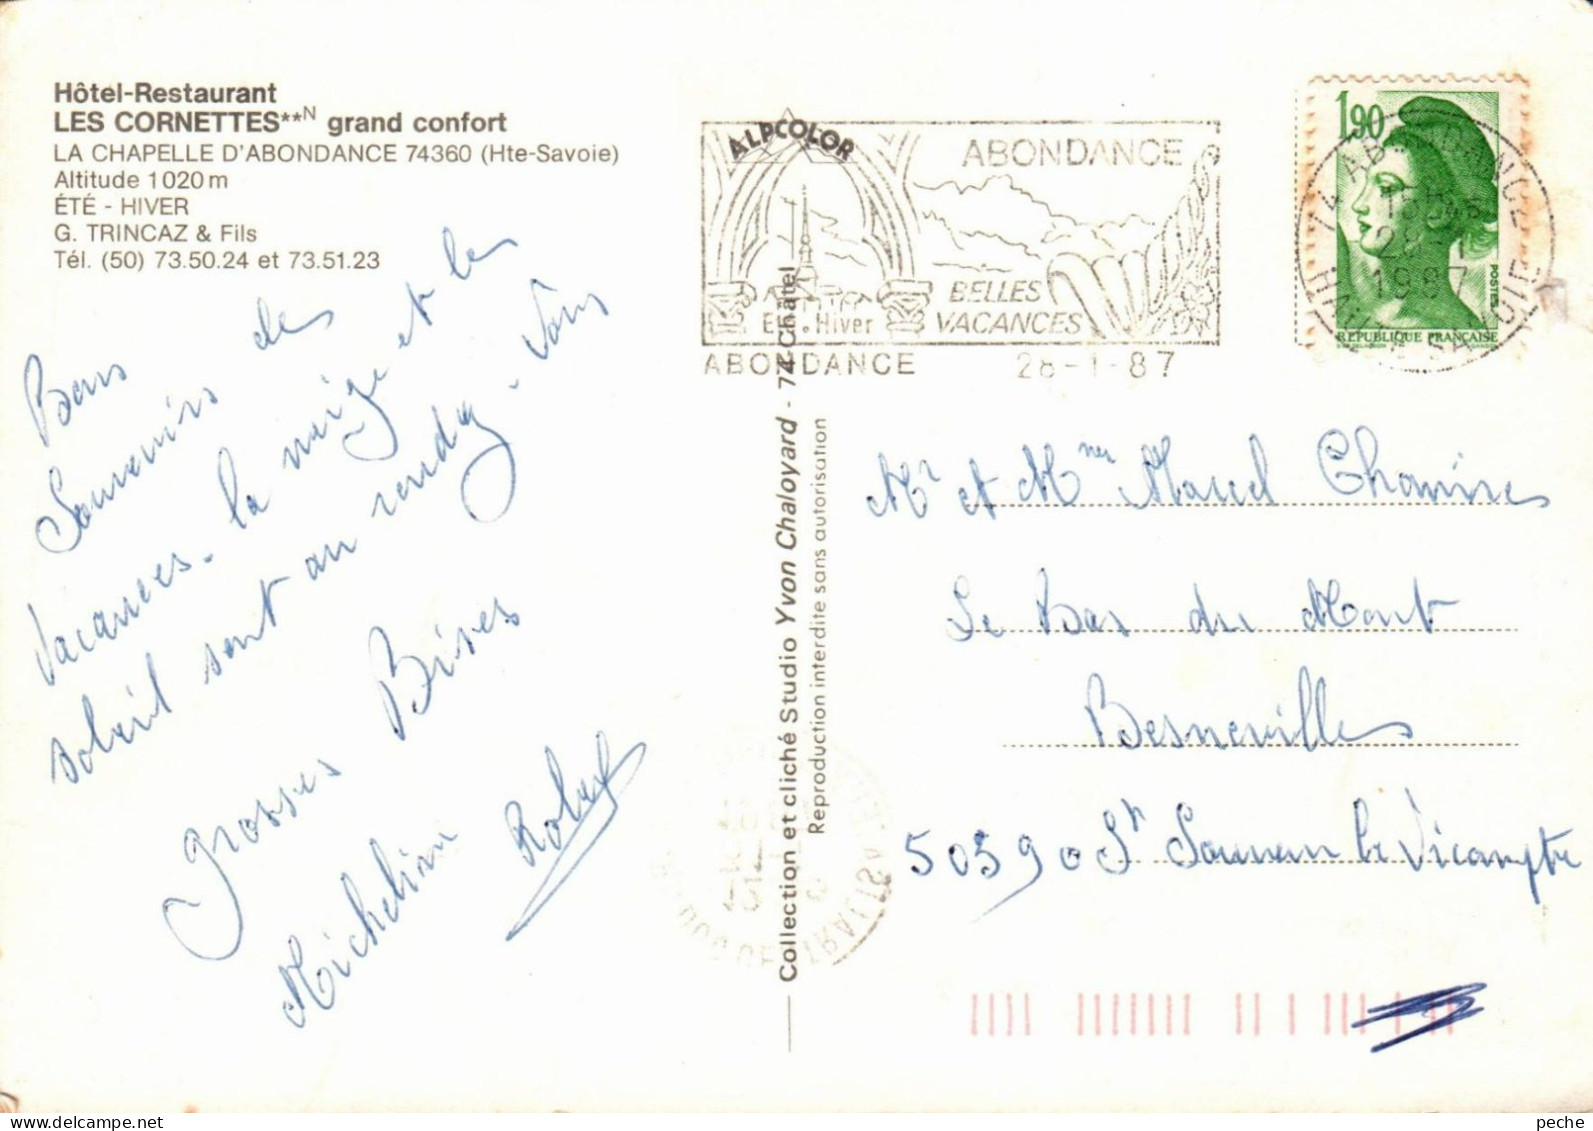 Hôtel-Restaurant
LES CORNETTES**N grand confort
LA CHAPELLE D'ABONDANCE 74360 (Hte-Savoie)
Altitude 1020 m
ÉTÉ - HIVER
G. TRINCAZ & Fils
Tél. (50) 73.50.24 et 73.51.23
Bons
Souvenirs des
Vacances - la neige et le
soleil sont au rendez-vous
Grosses Bises
Michelin Robert
ALPCOLOR
ABONDANCE
BELLES
VACANCES
Eté . Hiver
ABONDANCE 28-1-87
1,90
POSTES
REPUBLIQUE FRANÇAISE
74 ABONDANCE
28-1
1987
HAUTE SAVOIE
Collection et cliché Studio Yvon Chaloyard - 74-Châtel
Reproduction interdite sans autorisation
Mr et Mme Marcel
Le Bas du Mont
Besneville
50390 St Sauveur le Vicompte
peche